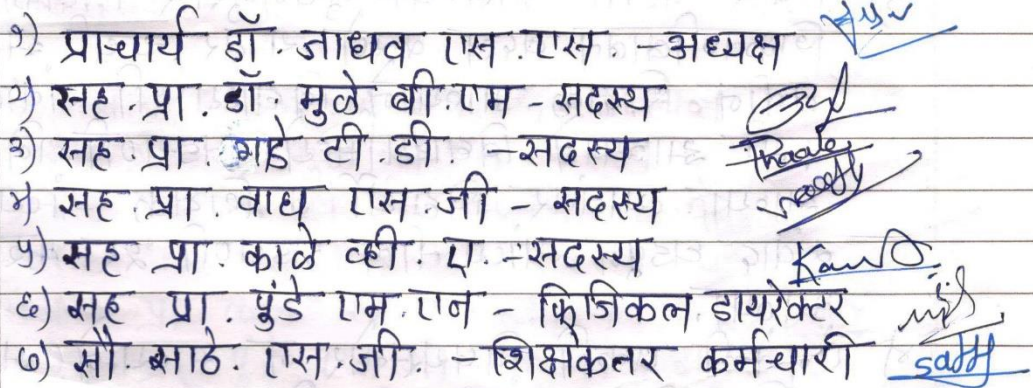 १) प्राचार्य डॉ जाधव एस.एस. - अध्यक्ष
२) सह. प्रा. डॉ. मुळे बी.एम - सदस्य
३) सह. प्रा. गाडे टी.डी. - सदस्य
४) सह. प्रा. वाघ एस.जी - सदस्य
५) सह प्रा. काळे व्ही. ए. - सदस्य
६) सह प्रा. पुंडे एम.एन - फिजिकल डायरेक्टर
७) सौ. साठे. एस.जी. - शिक्षकेतर कर्मचारी